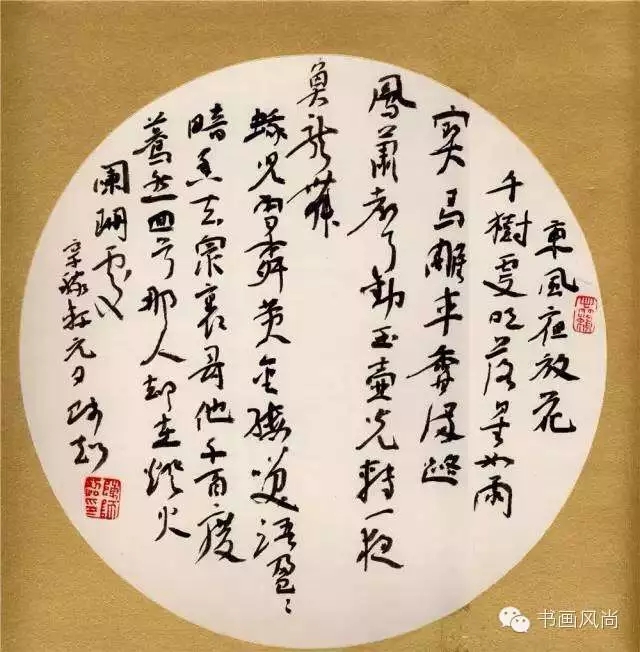 東風夜放花
千樹更吹落星如雨
寶馬雕車香滿路
鳳蕭聲動玉壺光轉一夜
魚龍舞
蛾兒雪柳黃金縷笑語盈〻
暗香去眾裏尋他千百度
驀然回首那人卻在燈火
闌珊處
辛稼軒元夕
书画风尚